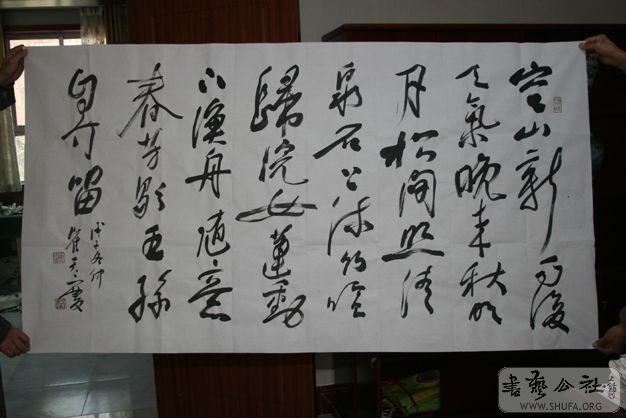 空山新雨後
天氣晚来秋明
月松间照清
泉石上流竹喧
歸浣女蓮動
下漁舟随意
春芳歇王孫
自可留
戊子冬
書藝公社
WWW.SHUFA.ORG